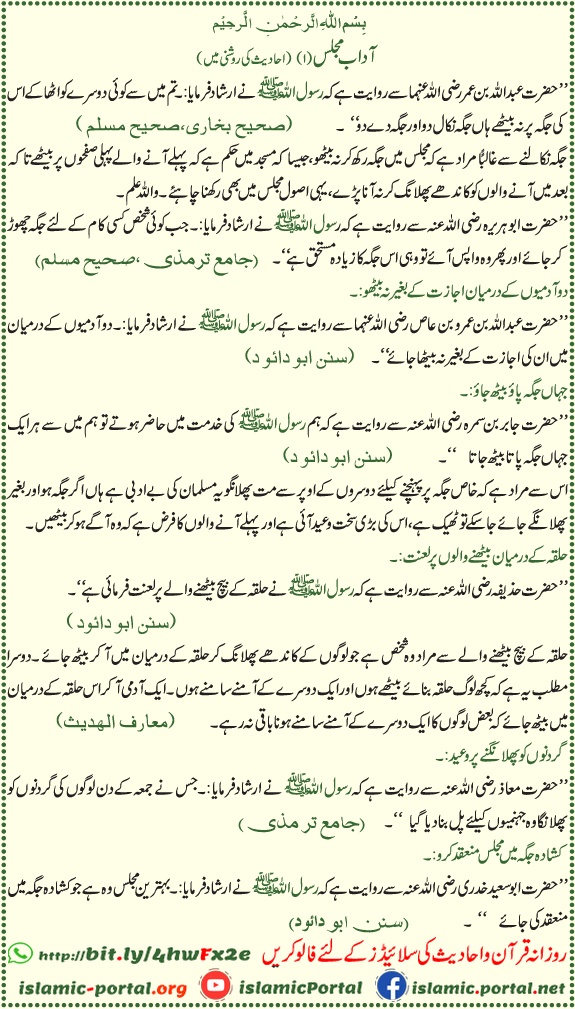 بِسْمِ اللهِ الرَّحْمٰنِ الرَّحِيْمِ
آدابِ مجلس (۱) (احادیث کی روشنی میں)
’’حضرت عبداللہ بن عمر رضی اللہ عنہما سے روایت ہے کہ رسول اللہ ﷺ نے ارشاد فرمایا:۔ تم میں سے کوئی دوسرے کو اٹھا کے اس
کی جگہ پر نہ بیٹھے ہاں جگہ نکال دو اور جگہ دے دو‘‘ ۔ (صحیح بخاری،صحیح مسلم )
جگہ نکالنے سے غالباً مراد ہے کہ مجلس میں جگہ رکھ کر نہ بیٹھو، جیسا کہ مسجد میں حکم ہے کہ پہلے آنے والے پہلی صفحوں پر بیٹھے تا کہ
بعد میں آنے والوں کو کاندھے پھلانگ کر نہ آنا پڑے، یہی اصول مجلس میں بھی رکھنا چاہئے ۔ واللہ علم۔
’’حضرت ابو ہریرہ رضی اللہ عنہ سے روایت ہے کہ رسول اللہ ﷺ نے ارشاد فرمایا:۔ جب کوئی شخص کسی کام کے لئے جگہ چھوڑ
کر جائے اور پھر وہ واپس آئے تو وہی اس جگہ کا زیادہ مستحق ہے‘‘۔ (جامع ترمذی ،صحیح مسلم)
دو آدمیوں کے درمیان اجازت کے بغیر نہ بیٹھو:۔
’’حضرت عبداللہ بن عمرو بن عاص رضی اللہ عنہما سے روایت ہے کہ رسول اللہ ﷺ نے ارشاد فرمایا:۔ دو آدمیوں کے درمیان
میں ان کی اجازت کے بغیر نہ بیٹھا جائے‘‘ ۔ (سنن ابو دائو د)
جہاں جگہ پاؤ بیٹھ جاؤ:۔
’’حضرت جابر بن سمرہ رضی اللہ عنہ سے روایت ہے کہ ہم رسول اللہ ﷺ کی خدمت میں حاضر ہوتے تو ہم میں سے ہر ایک
جہاں جگہ پاتا بیٹھ جاتا ‘‘ ۔ (سنن ابو دائو د)
اس سے مراد ہے کہ خاص جگہ پر پہنچنے کیلئے دوسروں کے اوپر سے مت پھلانگو یہ مسلمان کی بے ادبی ہے ہاں اگر جگہ ہو اور بغیر
پھلانگے جائے جا سکے تو ٹھیک ہے، اس کی بڑی سخت وعید آئی ہے اور پہلے آنے والوں کا فرض ہے کہ وہ آگے ہو کر بیٹھیں ۔
حلقہ کے درمیان بیٹھنے والوں پر لعنت:۔
’’حضرت حذیفہ رضی اللہ عنہ سے روایت ہے کہ رسول اللہ ﷺ نے حلقہ کے بیچ بیٹھنے والے پر لعنت فرمائی ہے‘‘۔
(سنن ابو دائود )
حلقہ کے بیچ بیٹھنے والے سے مراد وہ شخص ہے جو لوگوں کے کاندھے پھلانگ کر حلقہ کے درمیان میں آ کر بیٹھ جائے ۔ دوسرا
مطلب یہ ہے کہ کچھ لوگ حلقہ بنائے بیٹھے ہوں اور ایک دوسرے کے آمنے سامنے ہوں ۔ ایک آدمی آ کر اس حلقہ کے درمیان
میں بیٹھ جائے کہ بعض لوگوں کا ایک دوسرے کے آمنے سامنے ہونا باقی نہ رہے ۔ (معارف الھدیث)
گردنوں کو پھلانگنے پر وعید:۔
’’حضرت معاذ رضی اللہ عنہ سے روایت ہے کہ رسول اللہ ﷺ نے ارشاد فرمایا:۔ جس نے جمعہ کے دن لوگوں کی گردنوں کو
پھلانگا وہ جہنمیوں کیلئے پل بنا دیا گیا ‘‘ ۔ (جامع تر مذی )
کشادہ جگہ میں مجلس منعقد کرو:۔
’’حضرت ابو سعید خدری رضی اللہ عنہ سے روایت ہے کہ رسول اللہ ﷺ نے ارشاد فرمایا:۔ بہترین مجلس وہ ہے جو کشادہ جگہ میں
منعقد کی جائے ‘‘ ۔ (سنن ابو دائود)
روزانہ قرآن و احادیث کی سلائیڈز کے لئے فالو کریں http://bit.ly/4hwFx2e
islamic-portal.org IslamicPortal islamic.portal.net